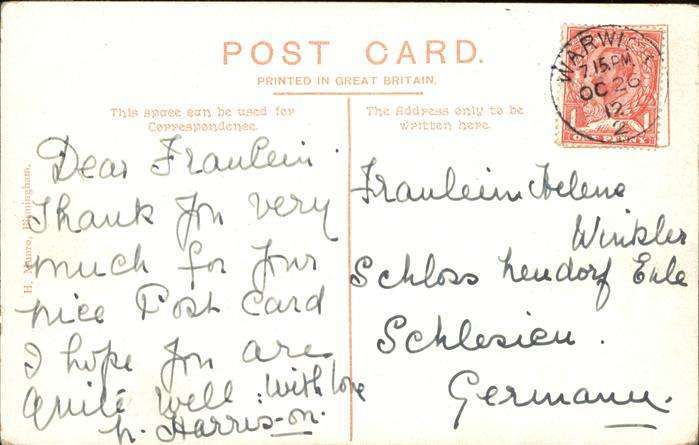 POST CARD.
PRINTED IN GREAT BRITAIN.
This space can be used for
Correspondence.
The Address only to be
written here.
H. Munro, Birmingham.
WARWICK
7.15 PM
OC 26
12
2
1 1
ONE PENNY
Dear Fraulein.
Thank you very
much for your
nice Post Card
I hope you are
quite well. With love
h. Harris-on.
Fraulein Helene
Winkler
Schloss neudorf Eule
Schlesien.
Germany.